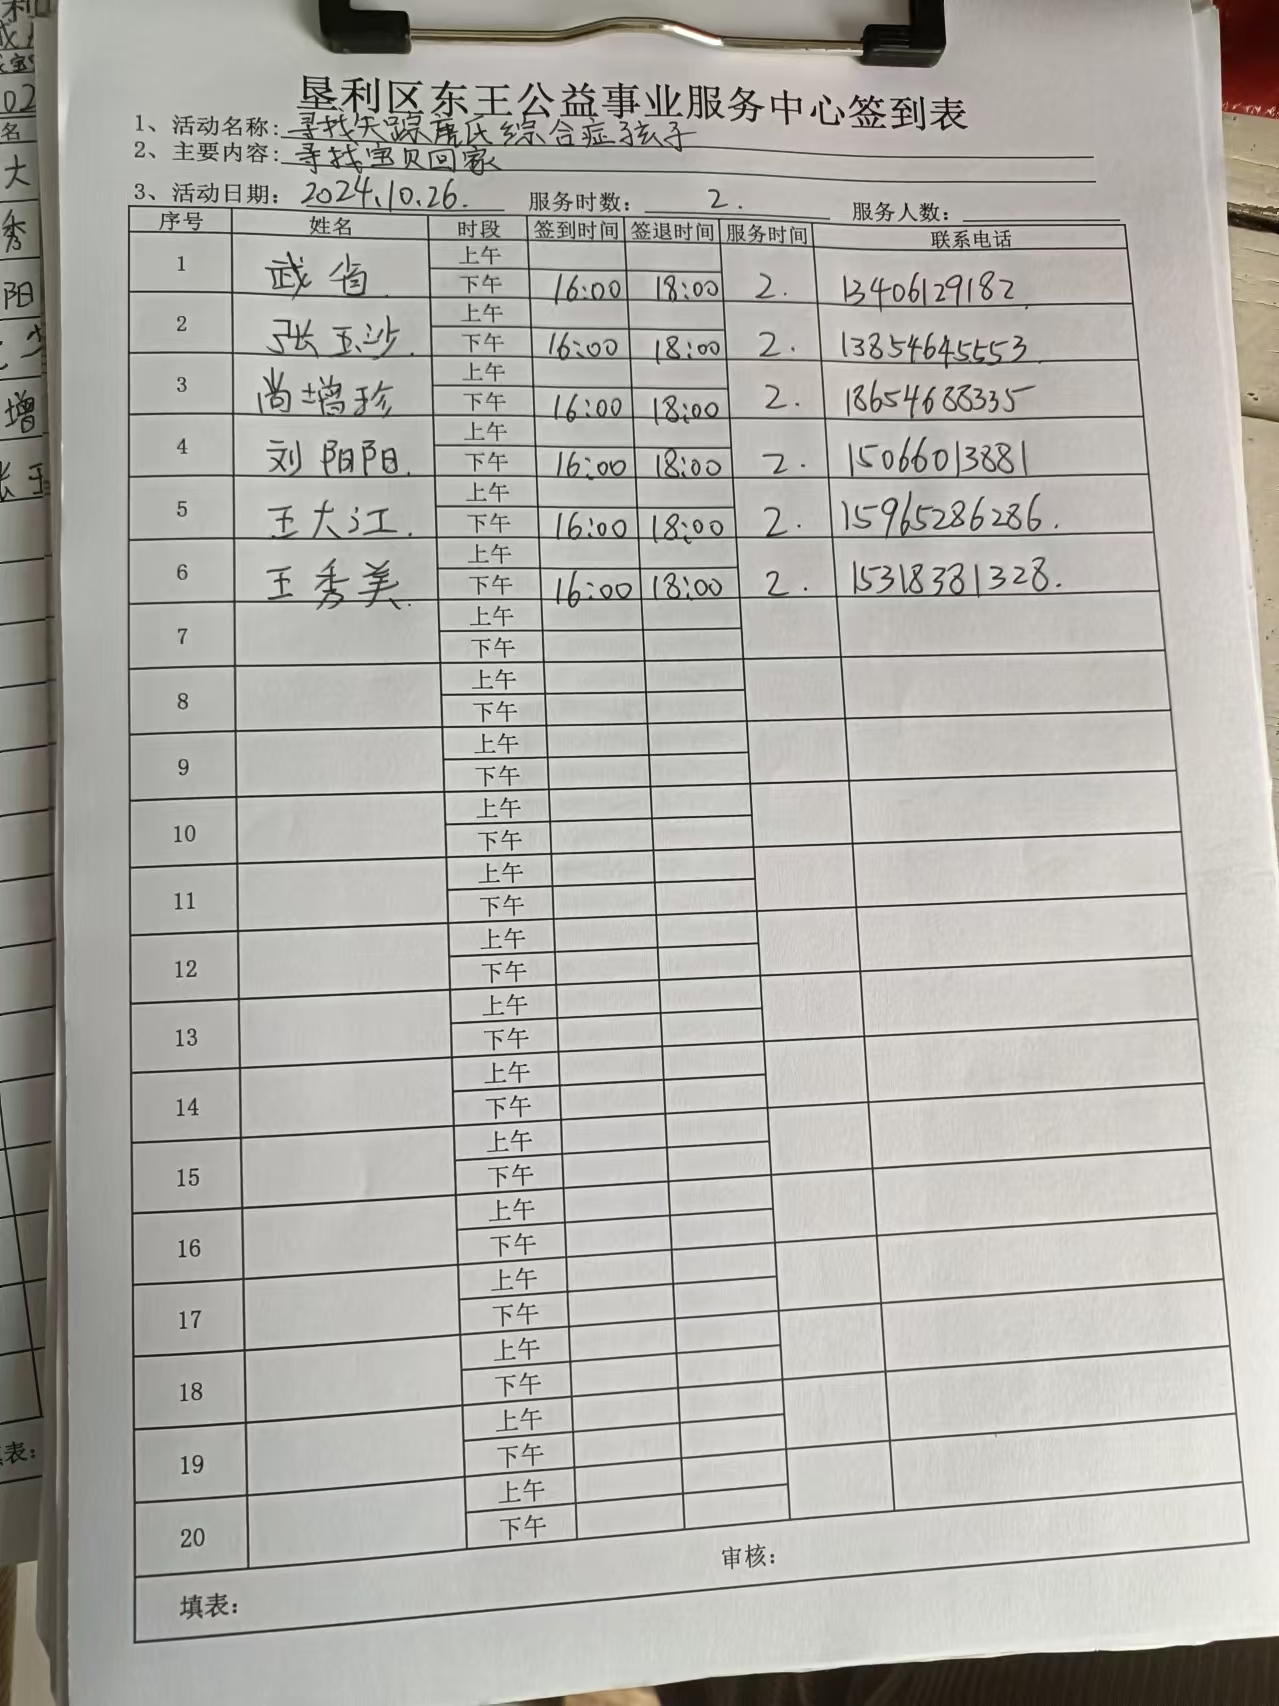 垦利区东王公益事业服务中心签到表
1、活动名称: 寻找失踪唐氏综合症孩子
2、主要内容: 寻找宝贝回家
3、活动日期: 2024.10.26. 服务时数: 2. 服务人数:
序号 姓名 时段 签到时间 签退时间 服务时间 联系电话
上午
1 武省 下午 16:00 18:00 2. 13406129182
上午
2 张玉沙 下午 16:00 18:00 2. 13854645553
上午
3 尚增珍 下午 16:00 18:00 2. 18654688335
上午
4 刘阳阳. 下午 16:00 18:00 2. 15066013881
上午
5 王大江. 下午 16:00 18:00 2. 15965286286.
上午
6 王秀美. 下午 16:00 18:00 2. 15318381328.
上午
7 下午
上午
8 下午
上午
9 下午
上午
10 下午
上午
11 下午
上午
12 下午
上午
13 下午
上午
14 下午
上午
15 下午
上午
16 下午
上午
17 下午
上午
18 下午
上午
19 下午
上午
20 下午
填表: 审核: